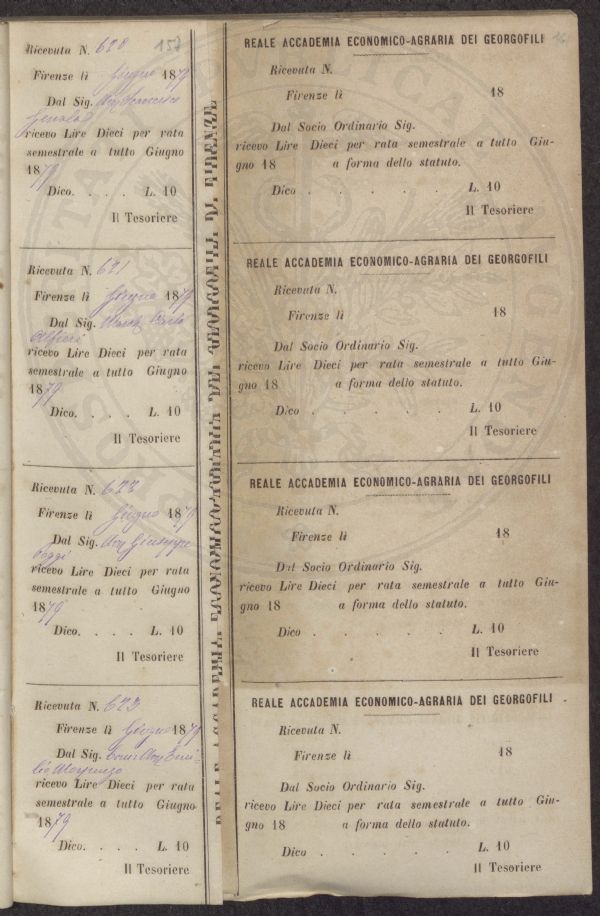 157
Ricevuta N. 620
Firenze lì Giugno 1879
Dal Sig. Avv. Francesco
ricevo Lire Dieci per rata
semestrale a tutto Giugno
1879
Dico. . . . L. 10
Il Tesoriere
Ricevuta N. 621
Firenze lì Giugno 1879
Dal Sig. March. Carlo
Alfieri
ricevo Lire Dieci per rata
semestrale a tutto Giugno
1879
Dico. . . . L. 10
Il Tesoriere
Ricevuta N. 622
Firenze lì Giugno 1879
Dal Sig. Avv. Giuseppe
Poggi
ricevo Lire Dieci per rata
semestrale a tutto Giugno
1879
Dico. . . . L. 10
Il Tesoriere
Ricevuta N. 623
Firenze lì Giugno 1879
Dal Sig. Comm. Avv. Emi-
lio
ricevo Lire Dieci per rata
semestrale a tutto Giugno
1879
Dico. . . . L. 10
Il Tesoriere
REALE ACCADEMIA ECONOMICO-AGRARIA DEI GEORGOFILI DI FIRENZE
REALE ACCADEMIA ECONOMICO-AGRARIA DEI GEORGOFILI
Ricevuta N.
Firenze lì 18
Dal Socio Ordinario Sig.
ricevo Lire Dieci per rata semestrale a tutto Giu-
gno 18 a forma dello statuto.
Dico . . . . . L. 10
Il Tesoriere
REALE ACCADEMIA ECONOMICO-AGRARIA DEI GEORGOFILI
Ricevuta N.
Firenze lì 18
Dal Socio Ordinario Sig.
ricevo Lire Dieci per rata semestrale a tutto Giu-
gno 18 a forma dello statuto.
Dico . . . . . L. 10
Il Tesoriere
REALE ACCADEMIA ECONOMICO-AGRARIA DEI GEORGOFILI
Ricevuta N.
Firenze lì 18
Dal Socio Ordinario Sig.
ricevo Lire Dieci per rata semestrale a tutto Giu-
gno 18 a forma dello statuto.
Dico . . . . . L. 10
Il Tesoriere
REALE ACCADEMIA ECONOMICO-AGRARIA DEI GEORGOFILI
Ricevuta N.
Firenze lì 18
Dal Socio Ordinario Sig.
ricevo Lire Dieci per rata semestrale a tutto Giu-
gno 18 a forma dello statuto.
Dico . . . . . L. 10
Il Tesoriere